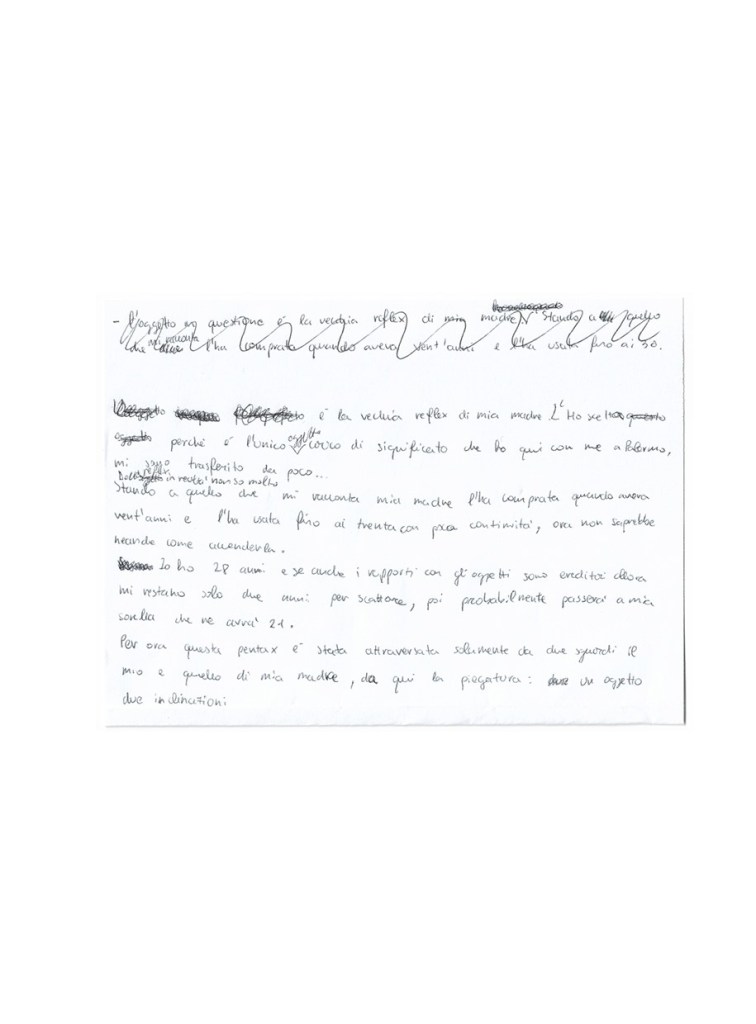 - l'oggetto in questione è la vecchia reflex di mia madre. Stando a quello
che mi racconta l'ha comprata quando aveva vent'anni e l'ha usata fino ai 30.
è la vecchia reflex di mia madre L'Ho scelto
perché è l'unico oggetto carico di significato che ho qui con me a Palermo,
mi sono trasferito da poco...
Della reflex in realtà non so molto
Stando a quello che mi racconta mia madre l'ha comprata quando aveva
vent'anni e l'ha usata fino ai trenta con poca continuità, ora non saprebbe
neanche come accenderla.
Io ho 28 anni e se anche i rapporti con gli oggetti sono ereditari allora
mi restano solo due anni per scattare, poi probabilmente passerà a mia
sorella che ne avrà 21.
Per ora questa pentax è stata attraversata solamente da due sguardi il
mio e quello di mia madre, da qui la piegatura: un oggetto
due inclinazioni